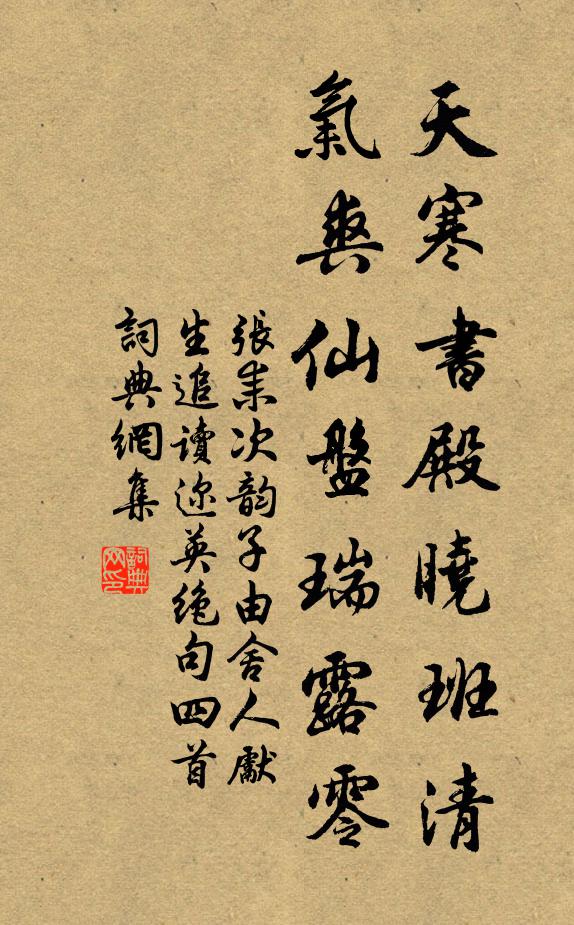 天寒書殿曉班清
氣爽仙盤瑞露零
張耒次韵子由舍人獻
生追讀迩英絶句四首
詞典網集
詞典网印